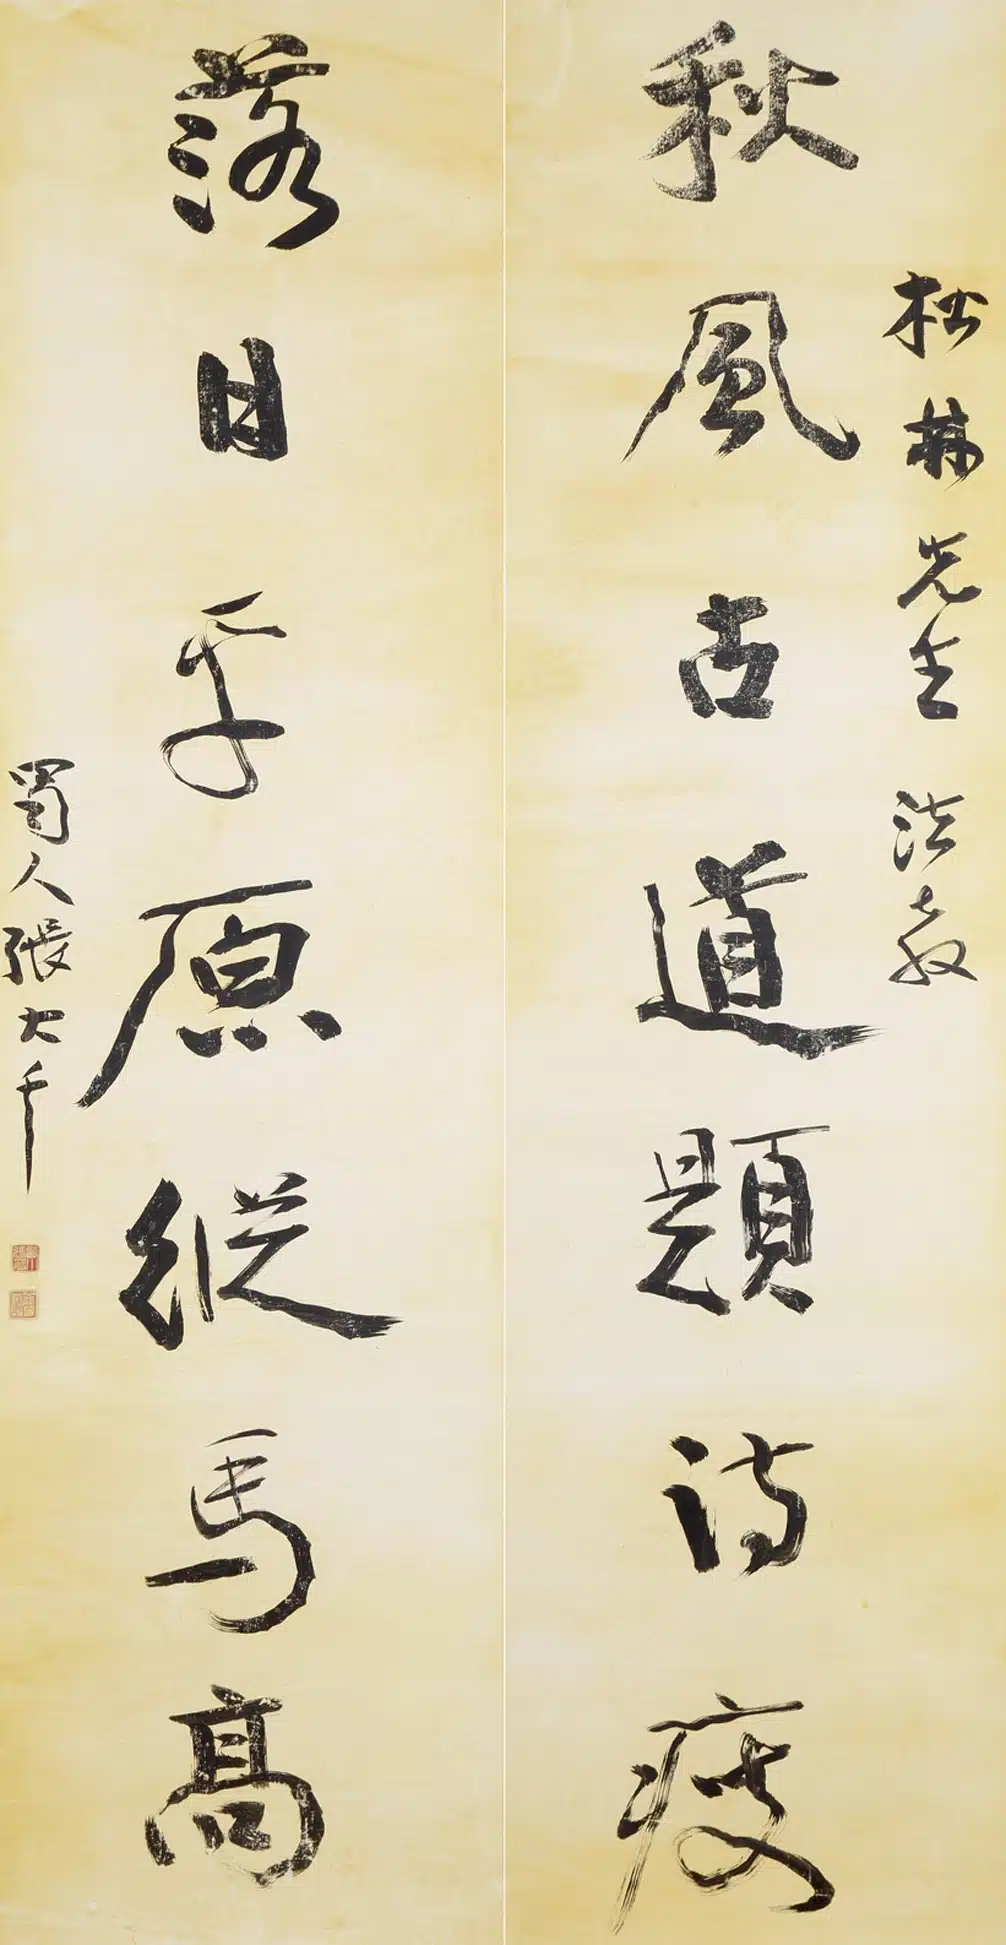 松先生法教
秋風古道題詩瘦
落日平原縱馬高
蜀人張大千